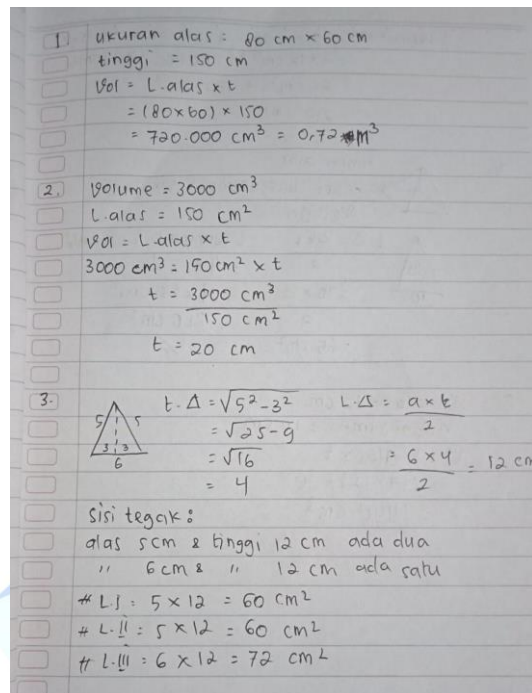 1. ukuran alas = 80 cm x 60 cm
tinggi = 150 cm
Vol = L.alas x t
= (80x60) x 150
= 720.000 cm³ = 0,72 m³
2. Volume = 3000 cm³
L.alas = 150 cm²
Vol = L.alas x t
3000 cm³ = 150 cm² x t
t = 3000 cm³
150 cm²
t = 20 cm
3. t.Δ = √5²-3² L.Δ = a x t
2
5 5
= √25-9
3 3
6
= √16 = 6 x 4 = 12 cm
2
= 4
Sisi tegak :
alas 5cm & tinggi 12 cm ada dua
" 6cm & " 12 cm ada satu
# L.I : 5 x 12 = 60 cm²
# L.II : 5 x 12 = 60 cm²
# L.III : 6 x 12 = 72 cm²